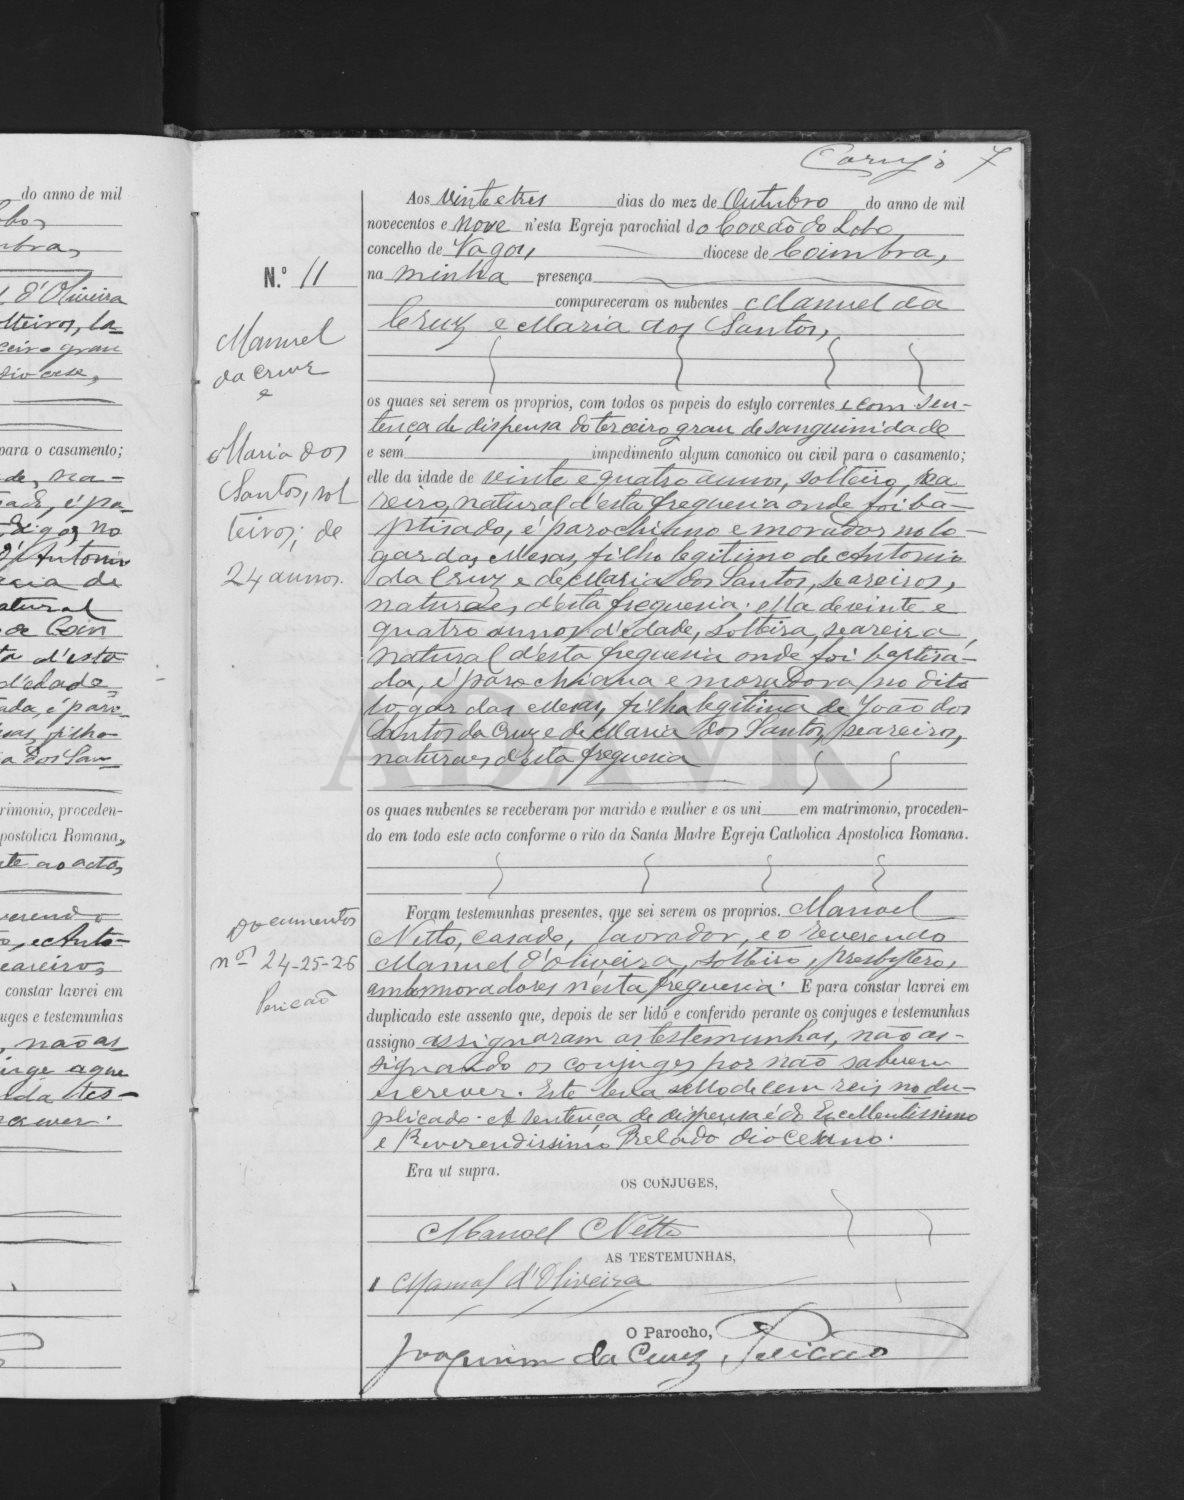 do anno de mil
bra,
d'Oliveira
lteiros, la-
ceiro grau
para o casamento;
Antonio
atural
ta d'esta
d'edade
ada, é paro-
filho
a dos San-
rimonio, proceden-
postolica Romana,
te ao acto,
e Anto-
eareiros,
constar lavrei em
uges e testemunhas
, não as
uge a que
das tes-
crever.
7
N.º 11
Manuel
da Cruz
e
Maria dos
Santos, sol
teiros; de
24 annos.
Documentos
nos 24-25-26
Pericão
Aos vinte e tres dias do mez de Outubro do anno de mil
novecentos e nove n'esta Egreja parochial do Covão do Lobo
concelho de Vagos, diocese de Coimbra,
na minha presença
compareceram os nubentes Manuel da
Cruz e Maria dos Santos,
os quaes sei serem os proprios, com todos os papeis do estylo correntes e com sen-
tença de dispensa do terceiro grau de sanguinidade
e sem impedimento algum canonico ou civil para o casamento;
elle da idade de vinte e quatro annos, solteiro, sea
reiro, natural d'esta freguesia onde foi ba-
ptisado, é parochiano e morador no lo-
gar das Mesas, filho legitimo de Antonio
da Cruz e de Maria dos Santos, seareiros,
naturaes d'esta freguesia; ella de vinte e
quatro annos d'edade, solteira, seareira,
natural d'esta freguesia onde foi baptisa-
da, é parochiana e moradora no dito
logar das Mesas, filha legitima de João dos
Santos da Cruz e de Maria dos Santos, seareiros,
naturaes d'esta freguesia
ADAVR
os quaes nubentes se receberam por marido e mulher e os uni em matrimonio, proceden-
do em todo este acto conforme o rito da Santa Madre Egreja Catholica Apostolica Romana.
Foram testemunhas presentes, que sei serem os proprios. Manoel
Netto, casado, lavrador, e o reverendo
Manuel d'Oliveira, solteiro, presbytero,
ambos moradores n'esta freguesia. E para constar lavrei em
duplicado este assento que, depois de ser lido e conferido perante os conjuges e testemunhas
assigno assignaram as testemunhas, não as-
signando os conjuges por não saberem
escrever. Este leva sello de cem reis no du-
plicado. A sentença de dispensa é do Excellentissimo
e Reverendissimo Prelado diocesano.
Era ut supra.
OS CONJUGES,
Manoel Netto
AS TESTEMUNHAS,
Manoel d'Oliveira
O Parocho,
Joaquim da Cruz Pericão